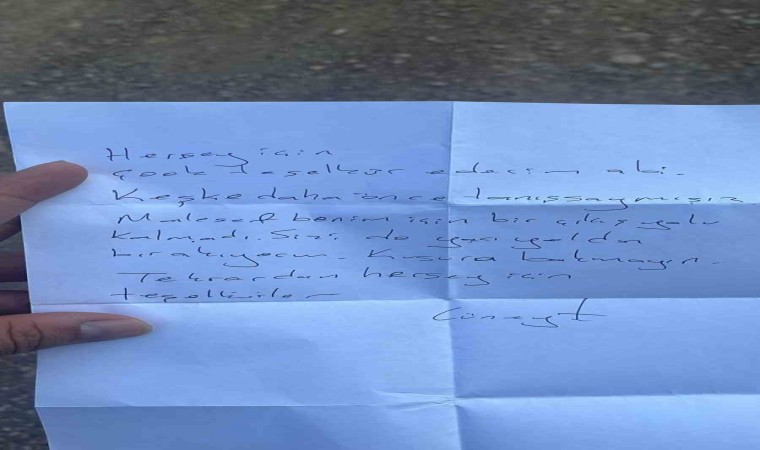 Herşey için
çook teşekkür ederim abi.
Keşke daha önce tanışsaymışız
Malesef benim için bir çıkış yolu
kalmadı. Sizi de yarı yolda
bırakıyorum. Kusura bakmayın.
Tekrardan herşey için
teşekkürler
Cüneyt